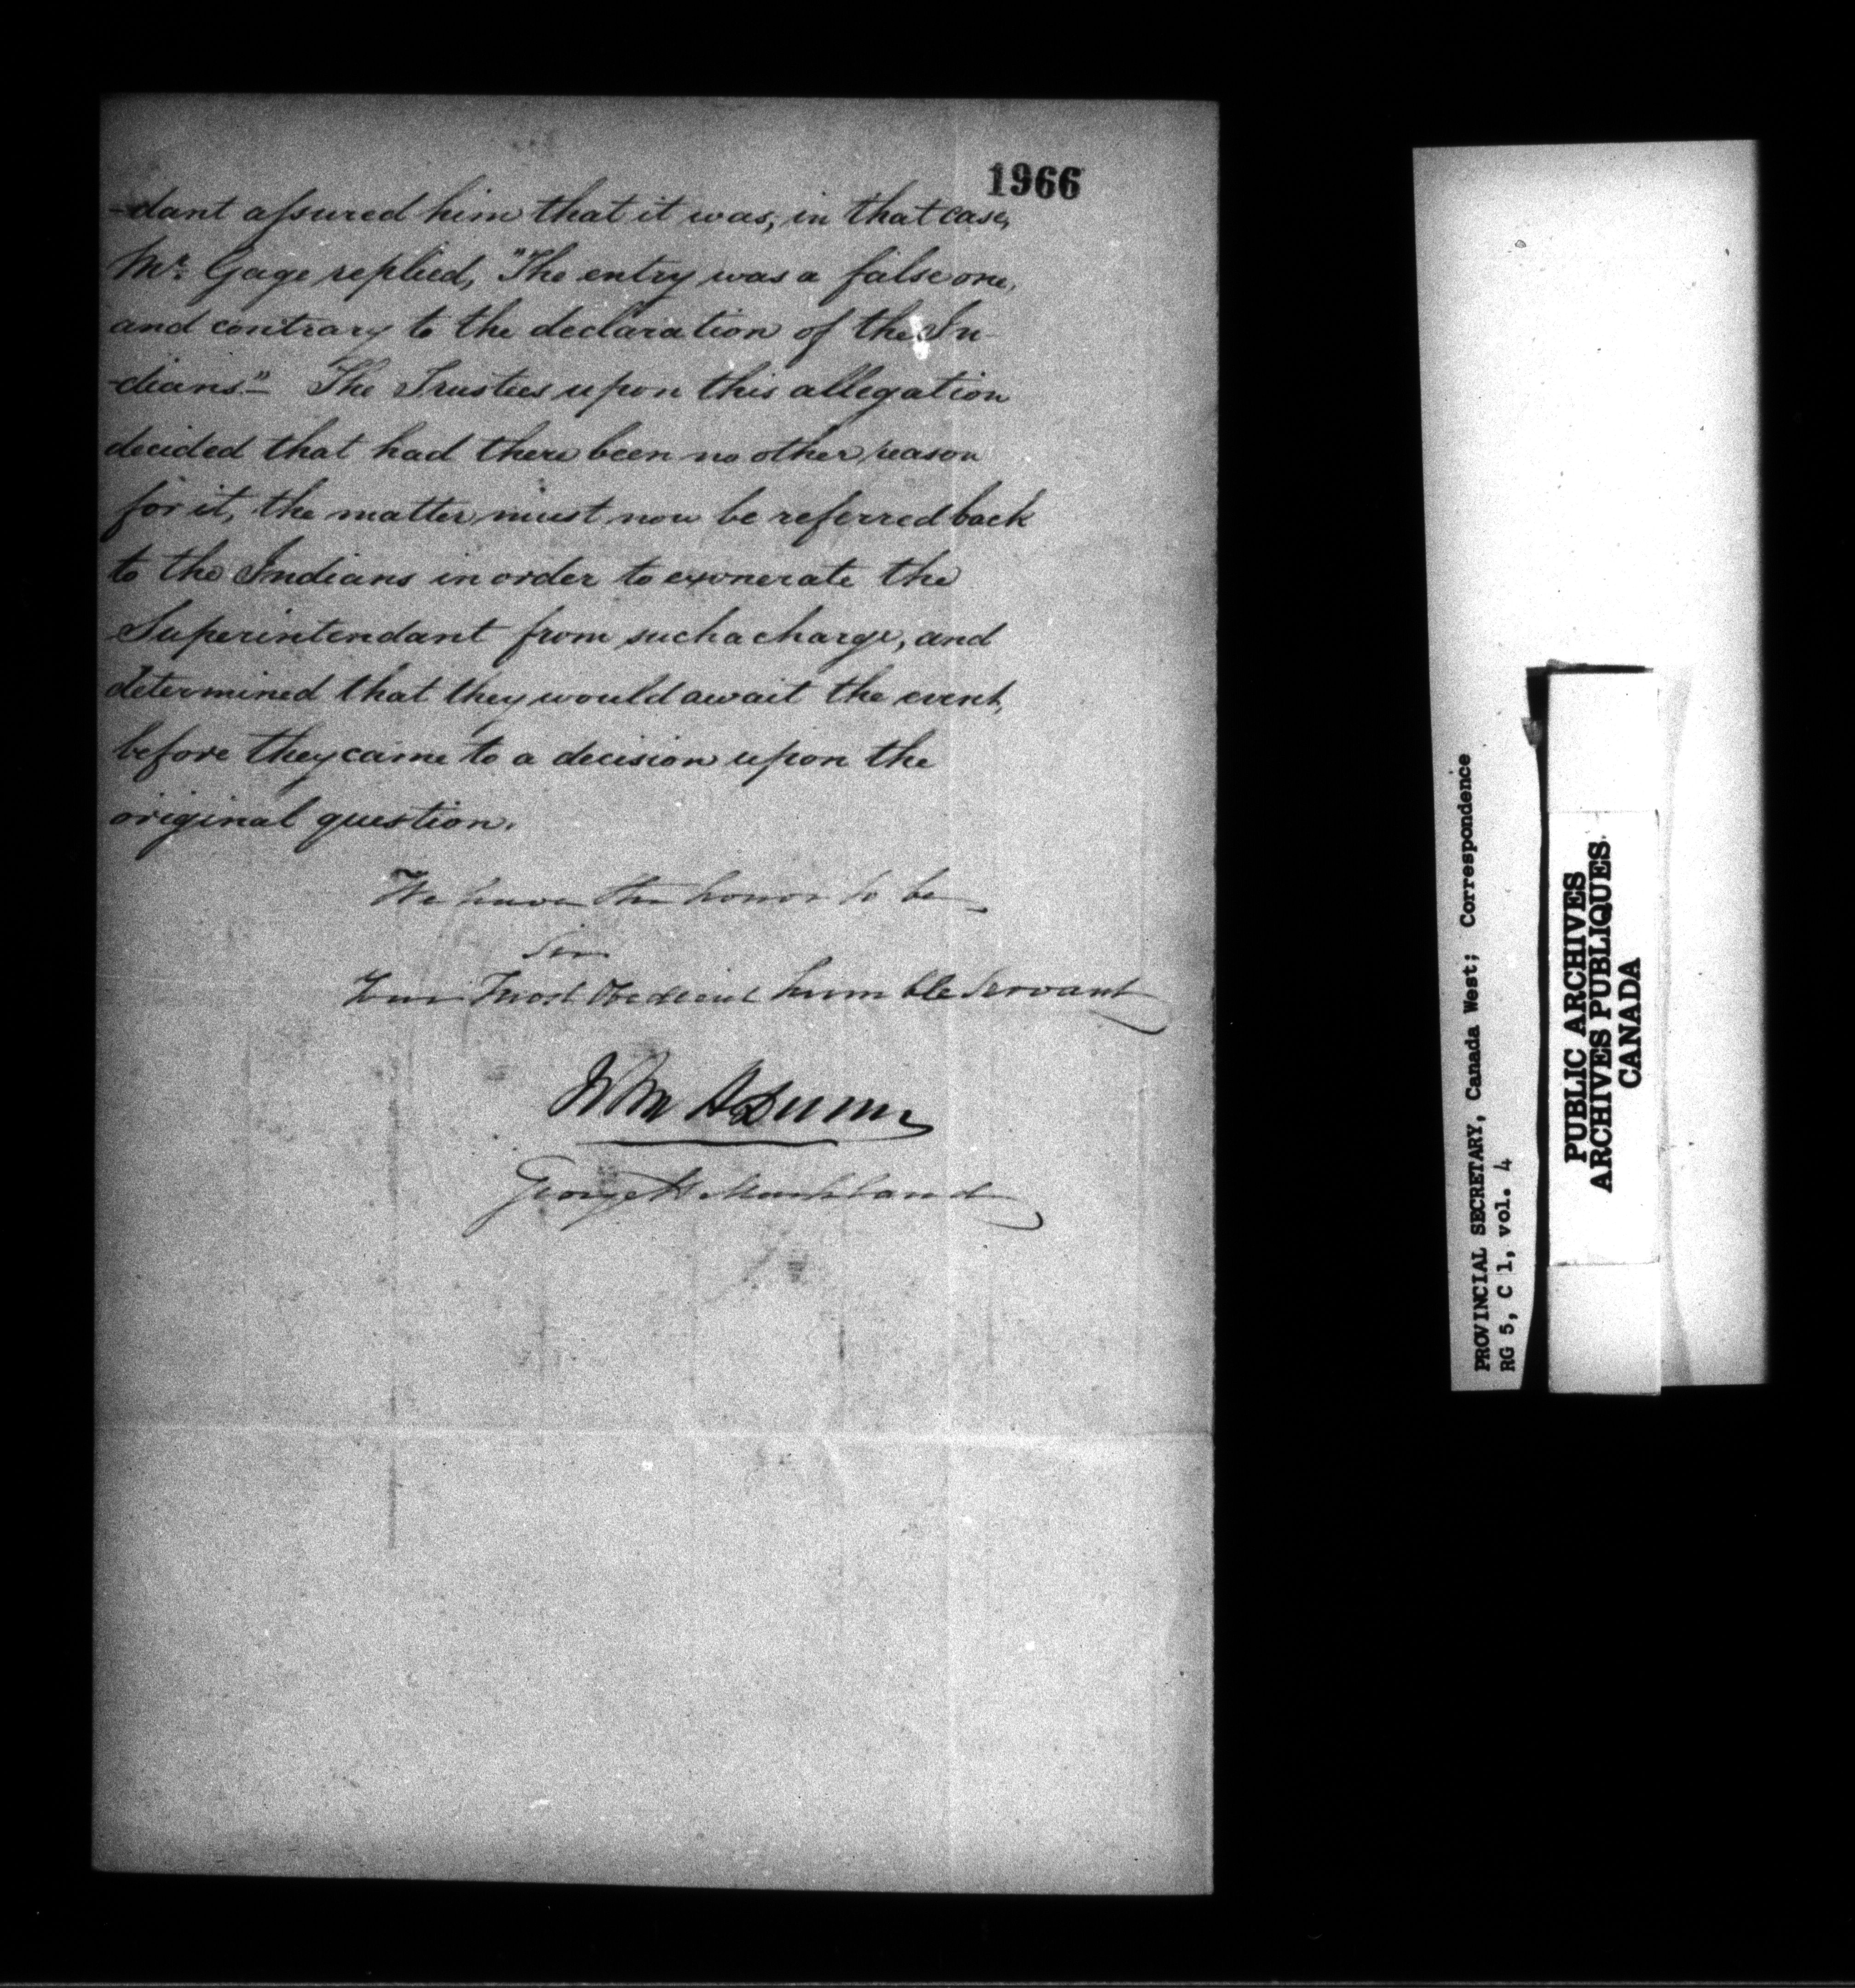 1966
-dant assured him that it was, in that case,
Mr. Gage replied, "The entry was a false one,
and contrary to the declaration of the In-
-dians." The Trustees upon this allegation
decided that had there been no other reason
for it, the matter must now be referred back
to the Indians in order to exonerate the
Superintendant from such a charge, and
determined that they would await the event,
before they came to a decision upon the
original question.
We have the honor to be
Sir
Your Most Obedient humble Servant
John H Dunn
George H Markland
PROVINCIAL SECRETARY, Canada West; Correspondence
RG 5, C 1, vol. 4
PUBLIC ARCHIVES
ARCHIVES PUBLIQUES
CANADA